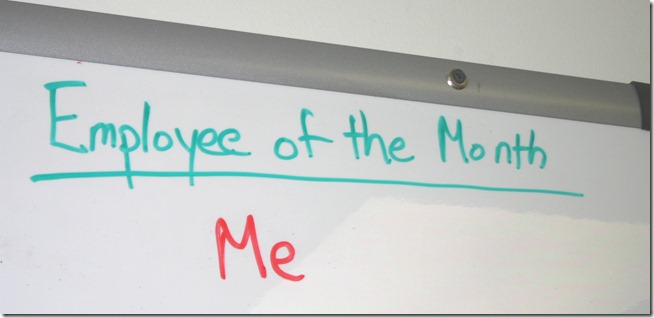 Employee of the Month
Me